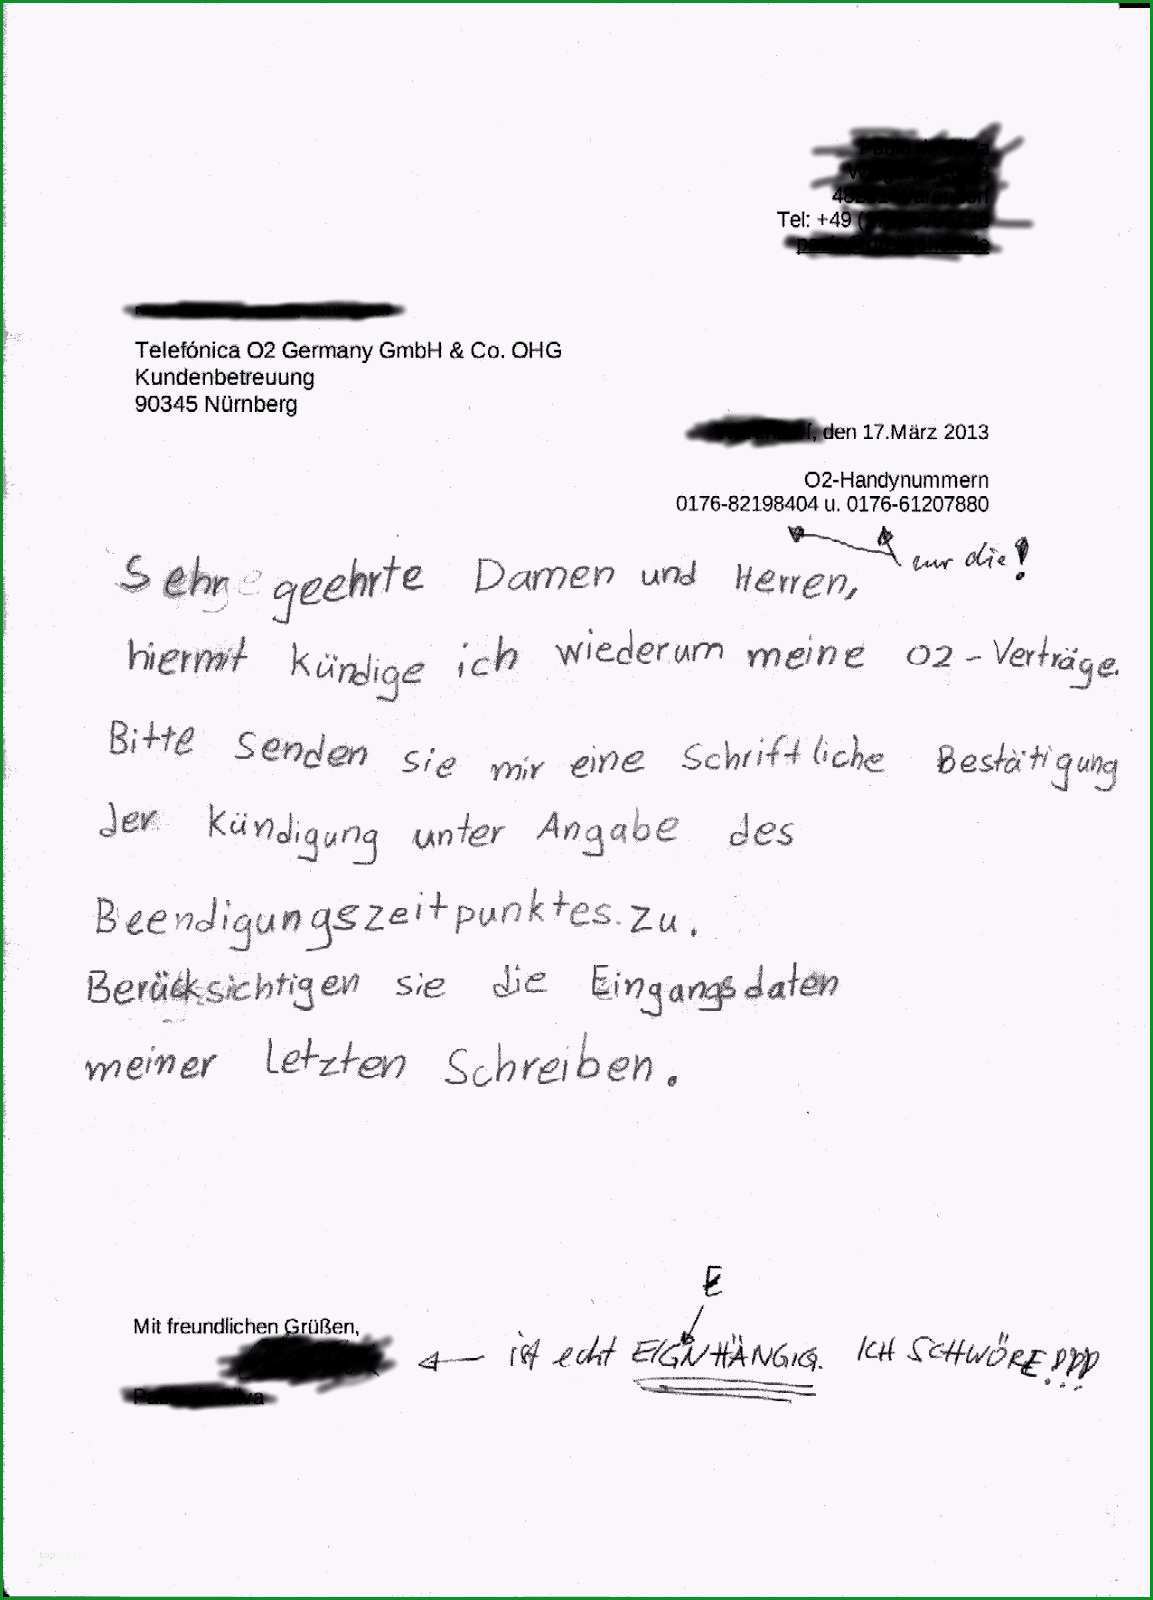 Tel: +49 (
Telefónica O2 Germany GmbH & Co. OHG
Kundenbetreuung
90345 Nürnberg
, den 17.März 2013
O2-Handynummern
0176-82198404 u. 0176-61207880
nur die!
Sehr geehrte Damen und Herren,
hiermit kündige ich wiederum meine O2-Verträge.
Bitte senden sie mir eine schriftliche Bestätigung
der Kündigung unter Angabe des
Beendigungszeitpunktes zu.
Berücksichtigen sie die Eingangsdaten
meiner letzten Schreiben.
E
Mit freundlichen Grüßen,
ist echt EIGNHÄNGIG. ICH SCHWÖRE!!!